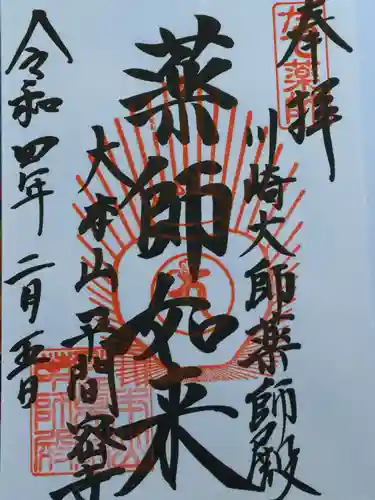 奉拝
川崎大師薬師殿
薬師如来
大本山平間寺
令和四年二月五日